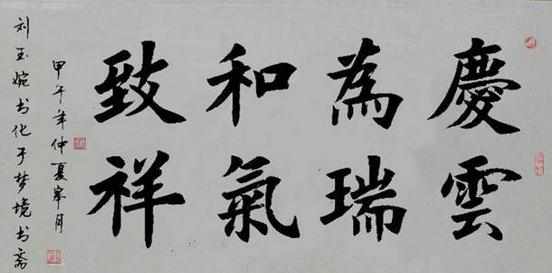 慶雲
為瑞
和氣
致祥
甲午年仲夏皋月
刘玉婉书化于梦境书斋